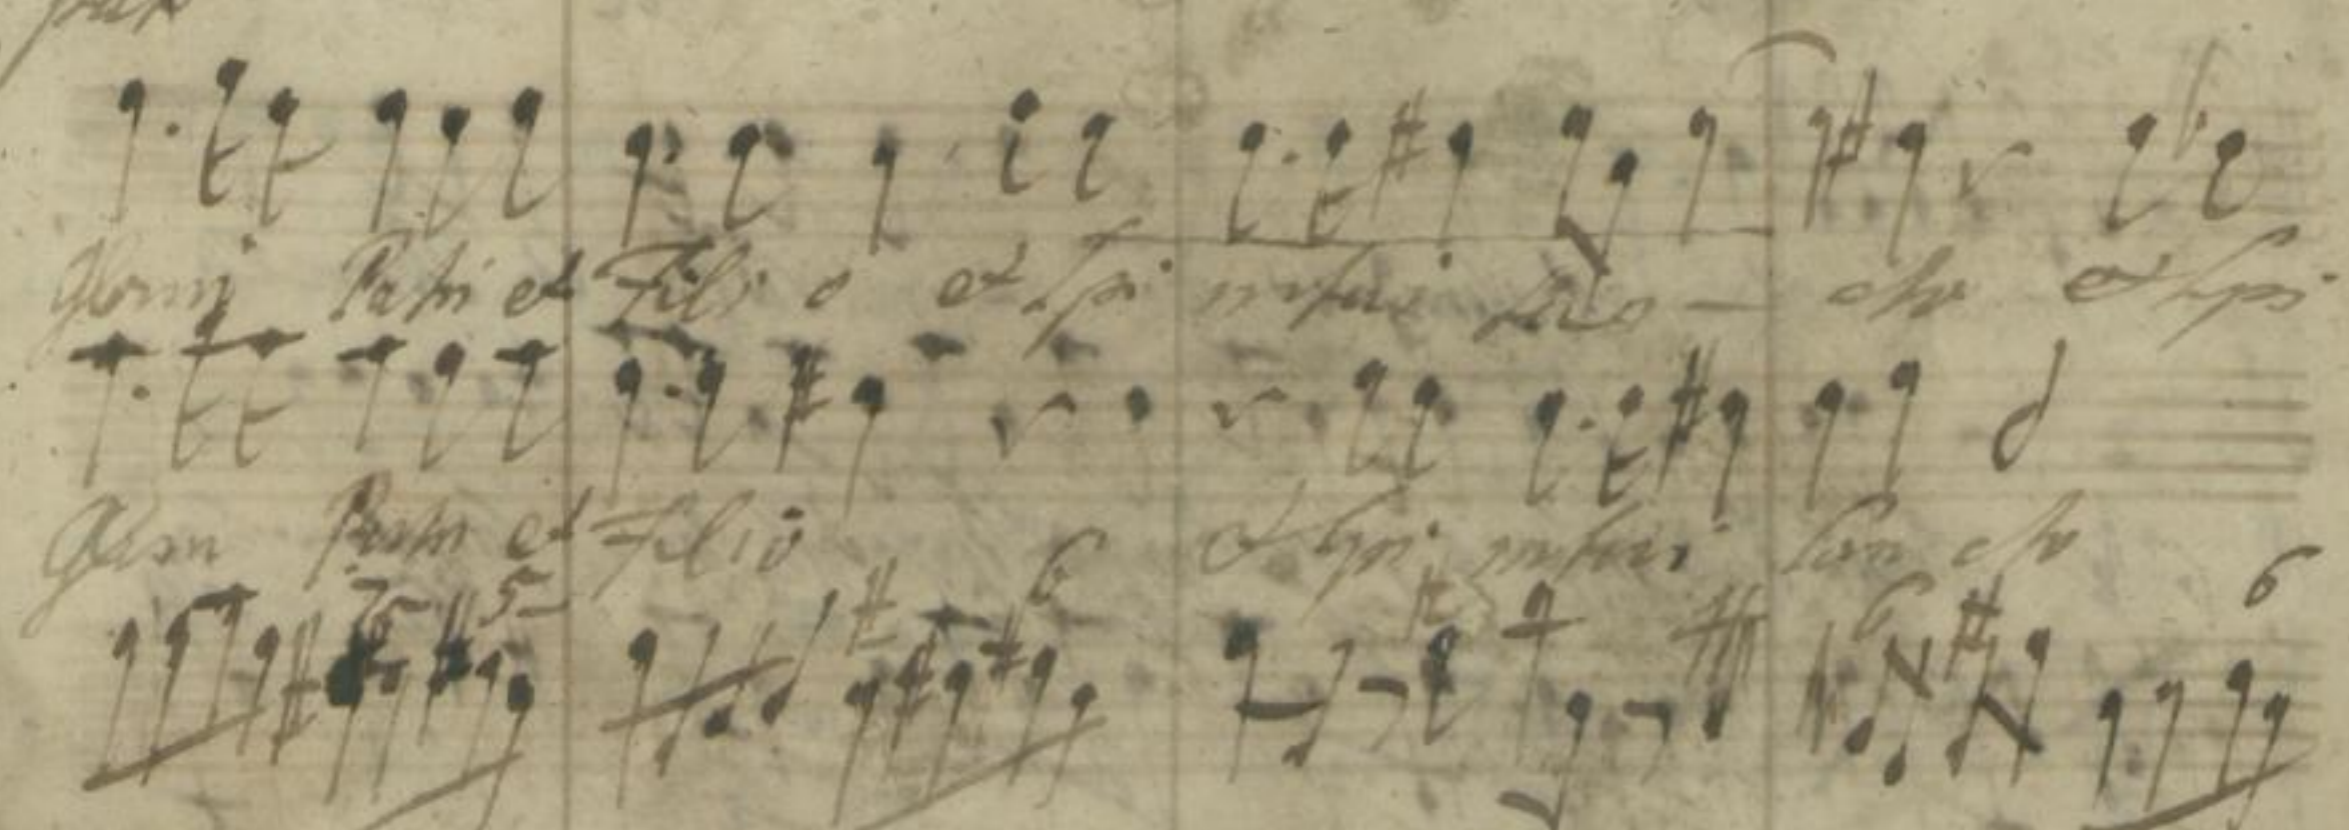 Gloria Patri et Filio et Spiritui Sancto et Spi
Gloria Patri et Filio et Spiritui Sancto